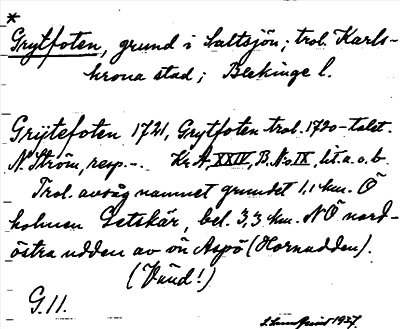 *
Grytfoten, grund i Saltsjön; trol. Karls-
krona stad; Blekinge l.
Grytefoten 1721, Grytfoten trol. 1720-talet.
N. Ström, resp. -. Kr. A, XXIV, B. No IX, lit. a. o. b.
Trol. avsåg namnet grundet 1,1 km. Ö
holmen Getskär, bel. 3,3 km. NÖ nord-
östra udden av ön Aspö (Hornudden).
(Vänd!)
G. 11.
1927.